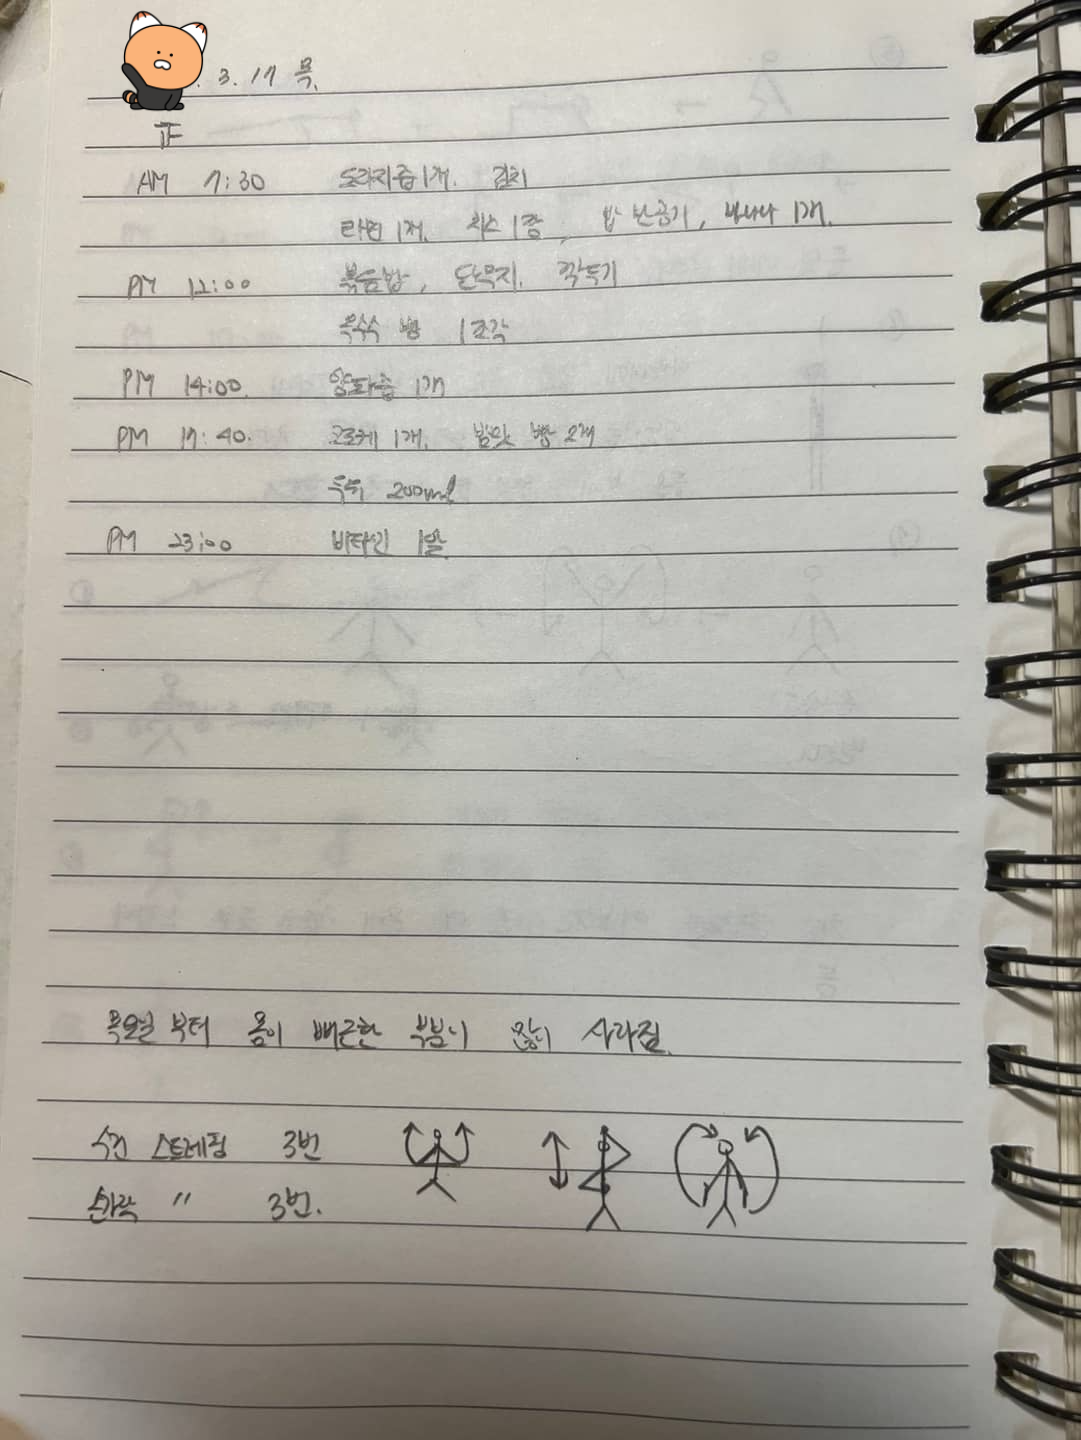 . 3. 17 목.
正
AM 7:30 도라지즙 1개. 김치
라면 1개. 치즈 1장, 밥 반공기, 바나나 1개.
PM 12:00 볶음밥, 단무지. 깍두기
옥수수 빵 1조각
PM 14:00. 양파즙 1개
PM 17:40. 고로케 1개. 밤맛 빵 2개
두유 200ml
PM 23:00 비타민 1알
목요일부터 몸이 뻐근한 부분이 많이 사라짐.
수건 스트레칭 3번
손가락 〃 3번.